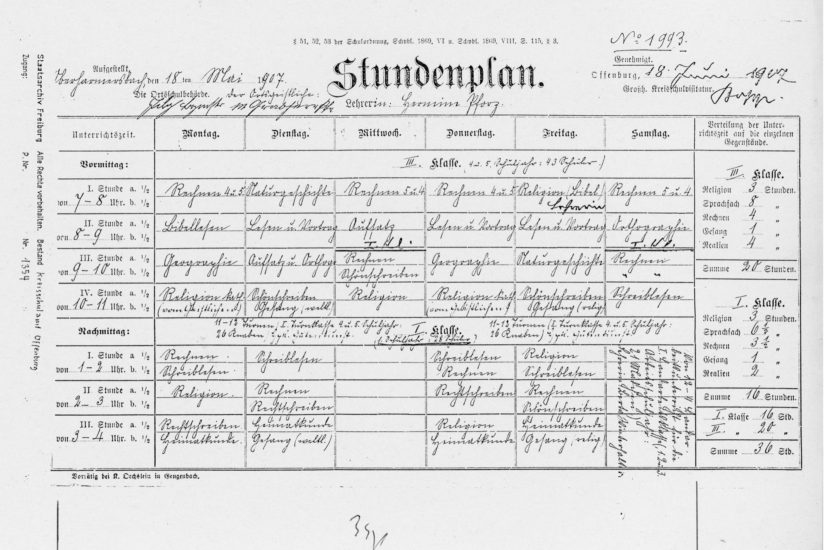 § 51, 52, 53 der Schulordnung, Schvbl. 1869, VI u. Schvbl. 1869, VIII, S. 115, § 3.
№ 1993.
Aufgestellt
Genehmigt.
Oberharmersbach den 18 ten Mai 1907.
Stundenplan.
Offenburg, 18. Juni 1907
Die Ortsschulbehörde.
Der Ortsgeistliche:
Lehrerin: Hermine Pforz.
Großh. Kreisschulvisitatur.
Unterrichtszeit. Montag. Dienstag. Mittwoch. Donnerstag. Freitag. Samstag. Verteilung der Unterrichtszeit auf die einzelnen Gegenstände.
Vormittag: III. Klasse. 4 u. 5. Schuljahr: 43 Schüler.
III. Klasse.
I. Stunde a. 1/2 von 7-8 Uhr. b. 1/2 Rechnen 4 u. 5 Naturgeschichte Rechnen 5 u 4 Rechnen 4 u 5 Religion (Bibel) Lehrerin Rechnen 5 u 4
Religion 3 Stunden.
Sprachfach 8 „
II. Stunde a. 1/2 von 8-9 Uhr. b. 1/2 Bibellesen Lesen u Vortrag Aufsatz Lesen u Vortrag Lesen u. Vortrag Orthographie
Rechnen 4 „
Gesang 1 „
Realien 4 „
I. Kl. I. Kl.
III. Stunde a. 1/2 von 9-10 Uhr. b. 1/2 Geographie Aufsatz u. Orthogr Rechnen Schönschreiben Geographie Naturgeschichte Rechnen „ „
Summe 20 Stunden.
IV. Stunde a. 1/2 von 10-11 Uhr. b. 1/2 Religion kath. (vom Geistlichen) Schönschreiben Gesang (weltl.) Religion Religion kath. (vom Geistlichen) Schönschreiben Gesang (relig) Schreiblesen
I. Klasse.
Religion 3 Stunden.
Nachmittag: 11-12 Turnen, I. Turnklasse 4. u. 5. Schuljahr: 26 Knaben
I. Klasse. (1. Schuljahr: 28 Schüler)
11-12 Turnen (I. Turnklasse 4. u. 5. Schuljahr: 26 Knaben)
Sprachfach 6 1/2 „
Rechnen 3 1/2 „
I. Stunde a. 1/2 von 1-2 Uhr. b. 1/2 Rechnen Schreiblesen Schreiblesen Schreiblesen Rechnen Religion Rechnen
Gesang 1 „
Realien 2 „
II. Stunde a. 1/2 von 2-3 Uhr. b. 1/2 Religion Rechnen Rechtschreiben Rechtschreiben Rechnen Schönschreiben
Summe 16 Stunden.
I. Klasse 16 Std.
III. „ 20 „
III. Stunde a. 1/2 von 3-4 Uhr. b. 1/2 Rechtschreiben Heimatkunde Heimatkunde Gesang (weltl) Religion Heimatkunde Heimatkunde Gesang, relig)
Summe 36 Std.
Vorrätig bei K. Oechslein in Gengenbach.
Staatsarchiv Freiburg Alle Rechte vorbehalten. Bestand Kreisschulamt Offenburg
Zugang: P. Nr. Nr. 1354